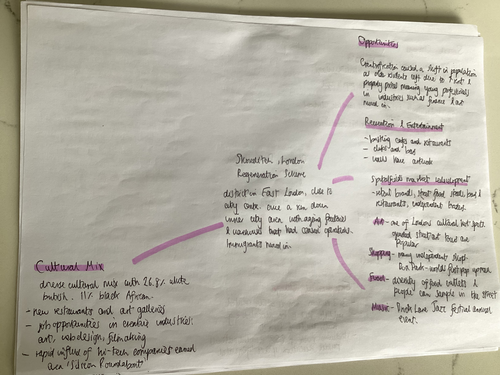 Shoreditch, London
Regeneration Scheme
district in East London, close to
city centre once a run down
inner city area with ageing factories
& warehouses that had ceased operations.
Immigrants moved in.
Opportunities
Gentrification caused a shift in population
as old residents left due to & rent &
property prices meaning young professionals
in industries such as finance & art
moved in.
Recreation & Entertainment
- bustling cafes and restaurants
- clubs and bars
- walls have artwork
Spitalfields market redevelopment
- vibrant brands, street food stands, bars &
restaurants, independent based
Art - one of Londons cultural hot spots
guided street art tours are
popular
Shopping - many independent shops
Box Park - worlds first pop up mall
Food - diversity of food outlets &
people can sample in the street
Music - Brick Lane Jazz festival annual
event.
Cultural Mix
diverse cultural mix with 26.8% white
british. 11% black African.
- new restaurants and art galleries
- job opportunities in creative industries:
art, web design, filmmaking
- rapid influx of hi-tech companies earned
area 'Silicon Roundabout